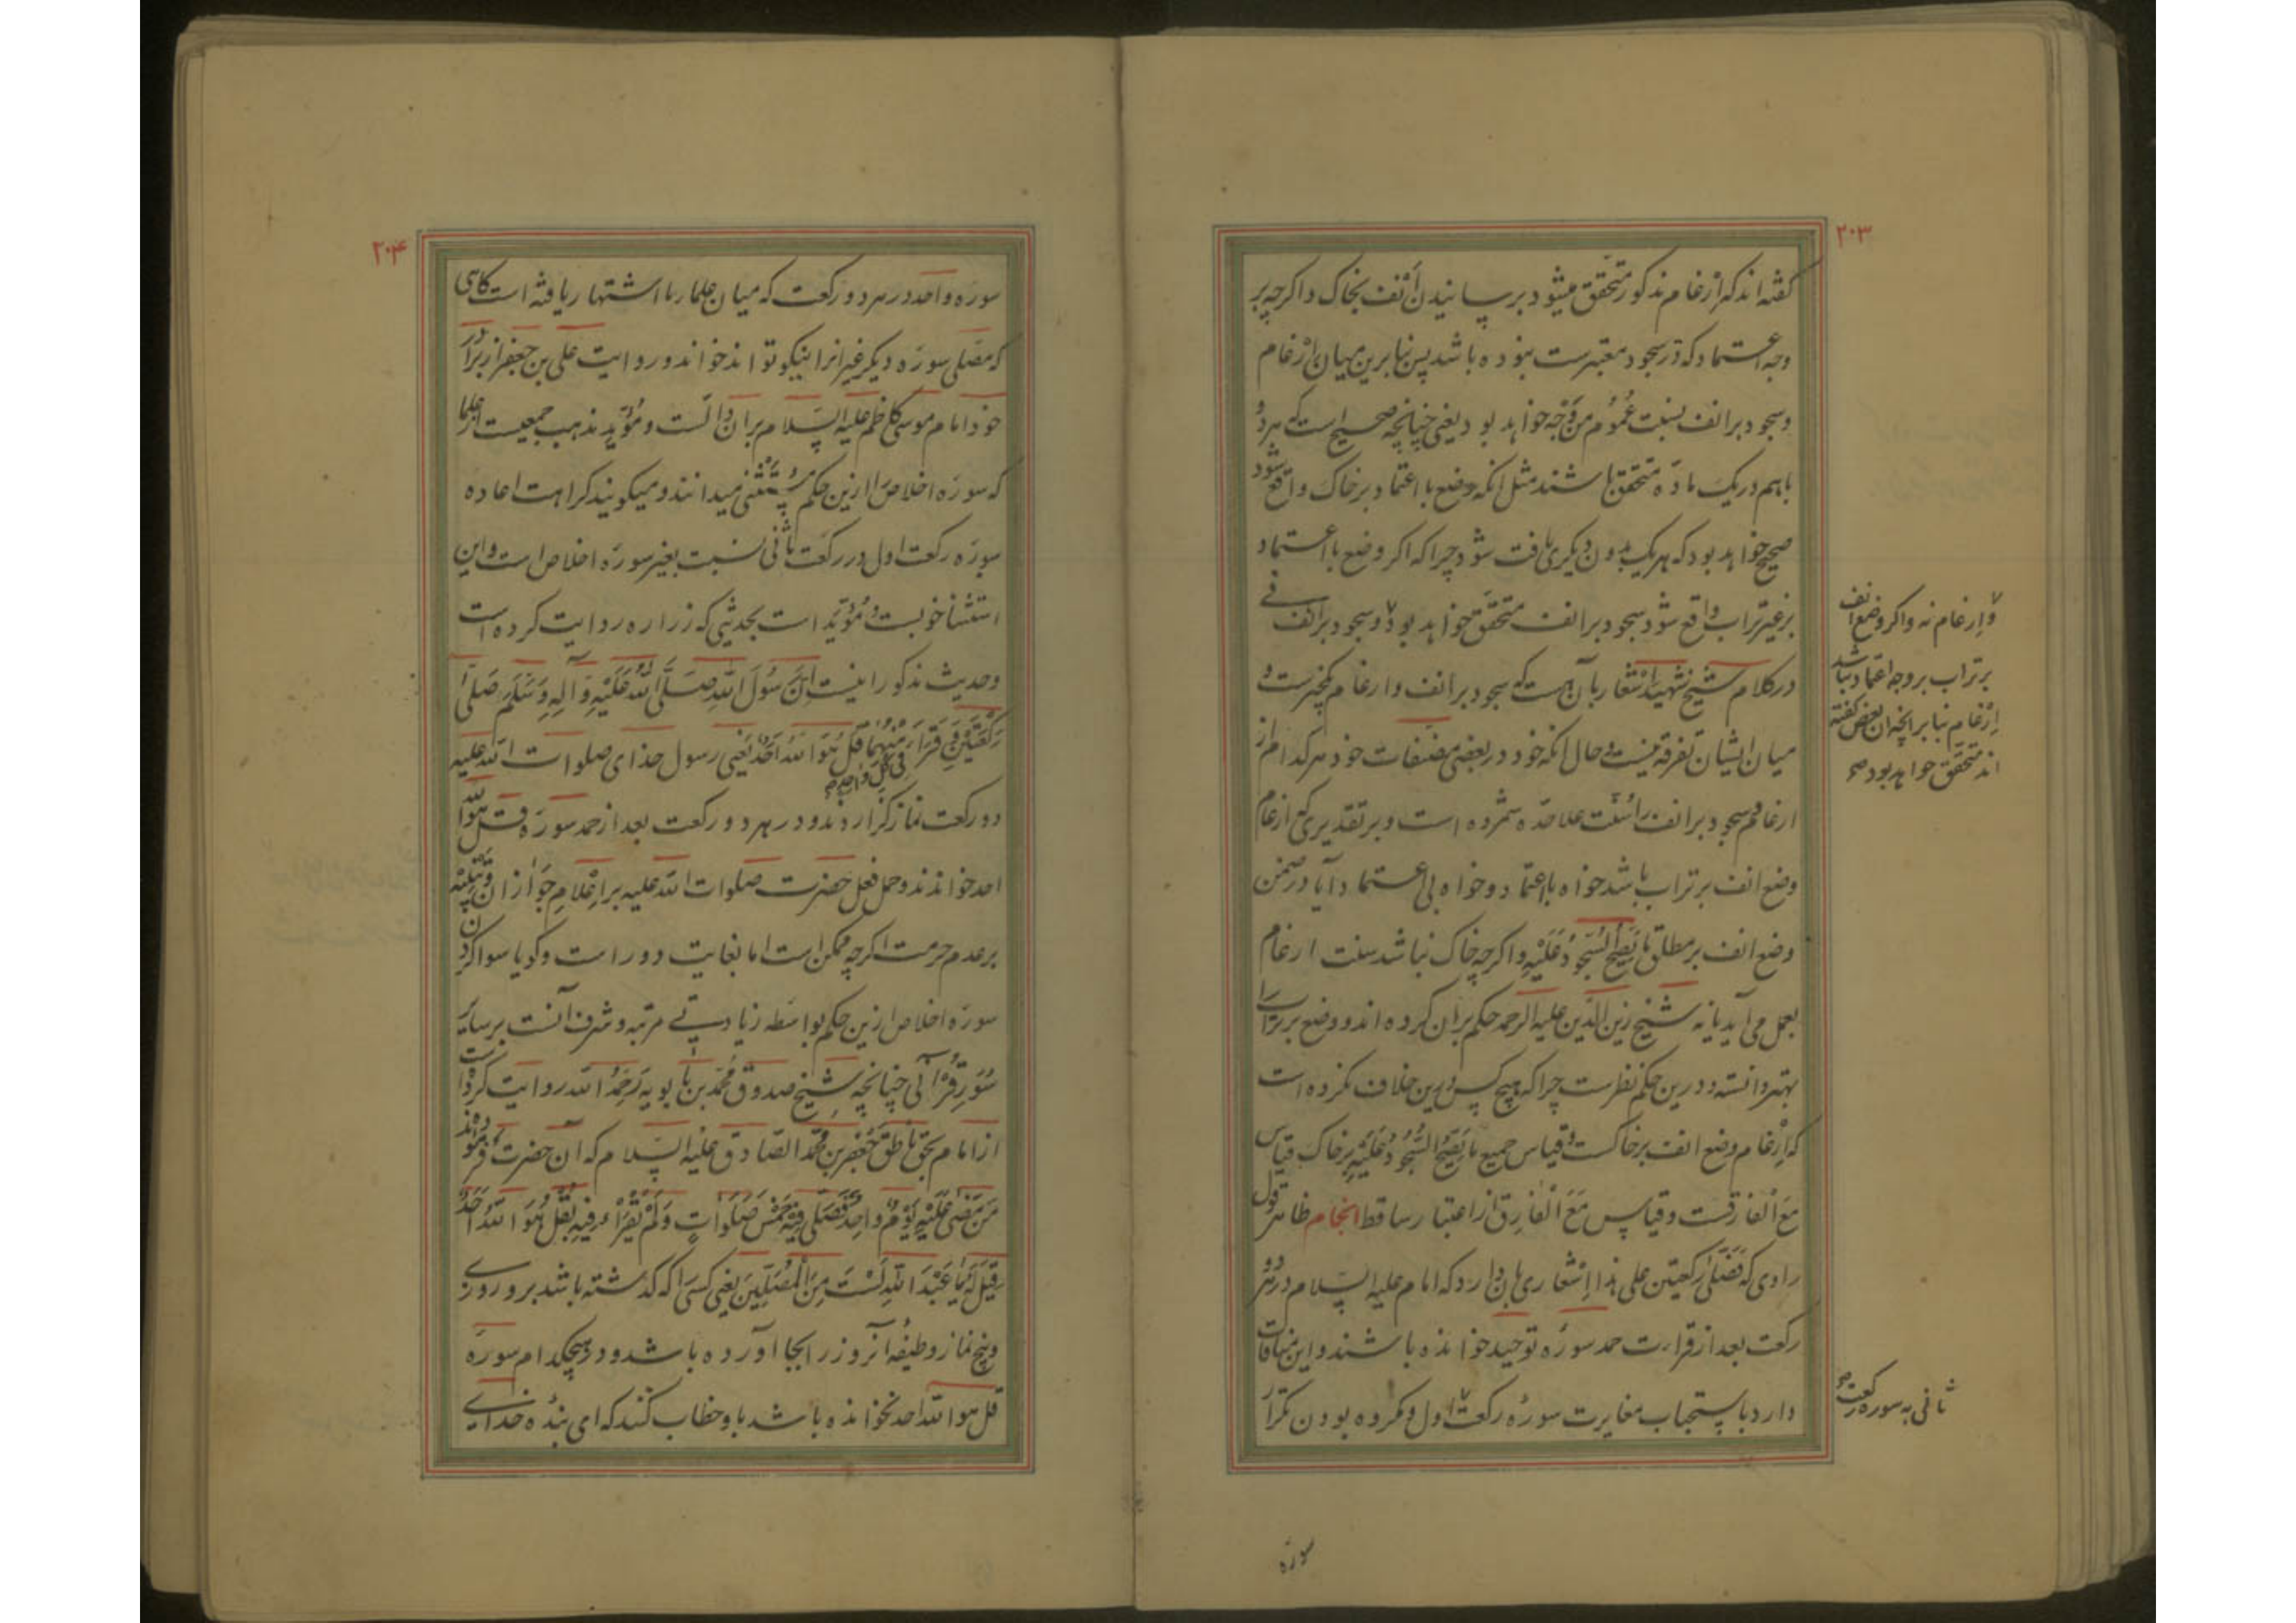 ۲۰۳
گفته‌اند که اِرْغام مذکور متحقّق میشود برسانیدن اَنْف بخاک و اگرچه بر
وجه اعتماد که در سجود معتبرست نبوده باشد پس بنابرین میان اِرْغام
و سجود بر انف نسبت عُمُوم مِنْ وَجْه خواهد بود یعنی چنانچه صحیح است که هر دو
باهم در یک مادّه متحقق باشند مثل انکه وضع با اعتماد بر خاک واقع شود
صحیح خواهد بود که هر یک بدون دیگری یافت شود چرا که اکر وضع با اعتماد
بر غیر تراب واقع شود سجود بر انف متحقّق خواهد بود ۷ و سجود بر انف نی
در کلام شیخ شهید اِشْعار بآن هست که سجود بر انف و ارغام یکچیزست و
میان ایشان تفرقه نیست و حال انکه خود در بعضی مصنفات خود هر کدام از
ارغام و سجود بر انف را سُنّت علاحدّه شمرده است و بر تقدیری که ارغام
وضع انف بر تراب باشد خواه با اعتماد و خواه بی اعتماد آیا در ضمن
وضع انف بر مطلق مَا یَصِحُّ السُّجُودُ عَلَیْهِ و اکرچه خاک نباشد سنت ارغام
بعمل می‌آید یا نه شیخ زین الدّین علیه الرحمه حکم بران کرده‌اند و وضع بر تراب را
بهتر دانسته و درین حکم نظرست چرا که هیچ کس درین خلاف نکرده است
که اِرْغام وضع انف بر خاکست و قیاس جمیع مَا یَصِحُّ السُّجُودُ عَلَیْهِ بر خاک قیاس
مَعَ الْفارِقست و قیاس مَعَ الْفارِق از اعتبار ساقط انجام ظاهر قول
راوی که فَصَلّیٰ رکعتین علی هذا اِشْعاری بان دارد که امام علیه السّلام در هر دو
رکعت بعد از قراءت حمد سورهٔ توحید خوانده باشند و این منافات
دارد با استحباب مغایرت سورهٔ رکعت ۷ اول و مکروه بودن تکرار
و اِرغام نه و اکر وضع انف
بر تراب بر وجه اعتماد نباشد
اِرْغام بنابر انچه ان بعض گفته
اند متحقّق خواهد بود صح
ثانی به سوره رکعت صح
سوره
۲۰۴
سوره واحد در هر دو رکعت که میان علمای ما اشتهار یافته است کاسی
که مصلّی سورَه دیکر غیر انرا نیکو تواند خواند و روایت علی بن جعفر از برادر
خود امام موسی کاظم علیه السّلام بران دالّست و مُؤَیّد مذهب جمعیست از علما
که سورَه اخلاص را ازین حکم مُسْتَثْنیٰ میدانند و میکویند کراهت اعاده
سورَه رکعت اول در رکعت ثانی نسبت بغیر سورَه اخلاص است و این
استثنا خوبست و مُؤَیّد است بحدیثی که زراره روایت کرده است
و حدیث مذکور اینست اِنَّ رَسُولَ اللّٰهِ صَلَّی اللّٰهُ عَلَیْهِ وَآلِهِ وَسَلَّمَ صَلّیٰ
رَکْعَتَیْنِ وَ قَرَأَ فِی کُلِّ وَاحِدٍ مِنْهُمَا قُلْ هُوَ اللّٰهُ اَحَدٌ یَعْنِی رسول خدای صلوات اللّٰه علیه
دو رکعت نماز گزاردند و در هر دو رکعت بعد از حمد سورَه قل هو اللّٰه
احد خواندند و حمل فعل حضرت صلوات اللّٰه علیه بر اِعْلام جَوَاز ان و تنبیه
بر عدم حرمت اکرچه ممکن است اما بغایت دور است و کویا سوا کردن
سورَه اخلاص ازین حکم بواسَطه زیادتی مرتبه و شرف آنست بر سایر
سُوَرِ قُرْآنی چنانچه شیخ صدوق مُحمّد بن بابویه رَحِمَهُ اللّٰه روایت کرده است
از امام بحق ناطق جَعْفَرِ بْنِ مُحَمَّدٍ الصّادق عَلَیْهِ السَّلام که آن حضرت فرموده‌اند
مَنْ مَضیٰ عَلَیْهِ یَوْمٌ وَاحِدٌ فَصَلّیٰ فِیْهِ خَمْسَ صَلَوَاتٍ وَلَمْ یَقْرَأْ فِیهِ بِقُلْ هُوَ اللّٰهُ اَحَدٌ
قِیْلَ لَهُ یَا عَبْدَ اللّٰهِ لَسْتَ مِنَ الْمُصَلِّیْنَ یعنی کسی را که کذشته باشد برو روزی
و پنج نماز وظیفهٔ آنروز را بجا آورده باشد و در هیچکدام سورَه
قل هو اللّٰه احد نخوانده باشد باو خطاب کنند که ای بنده خدای